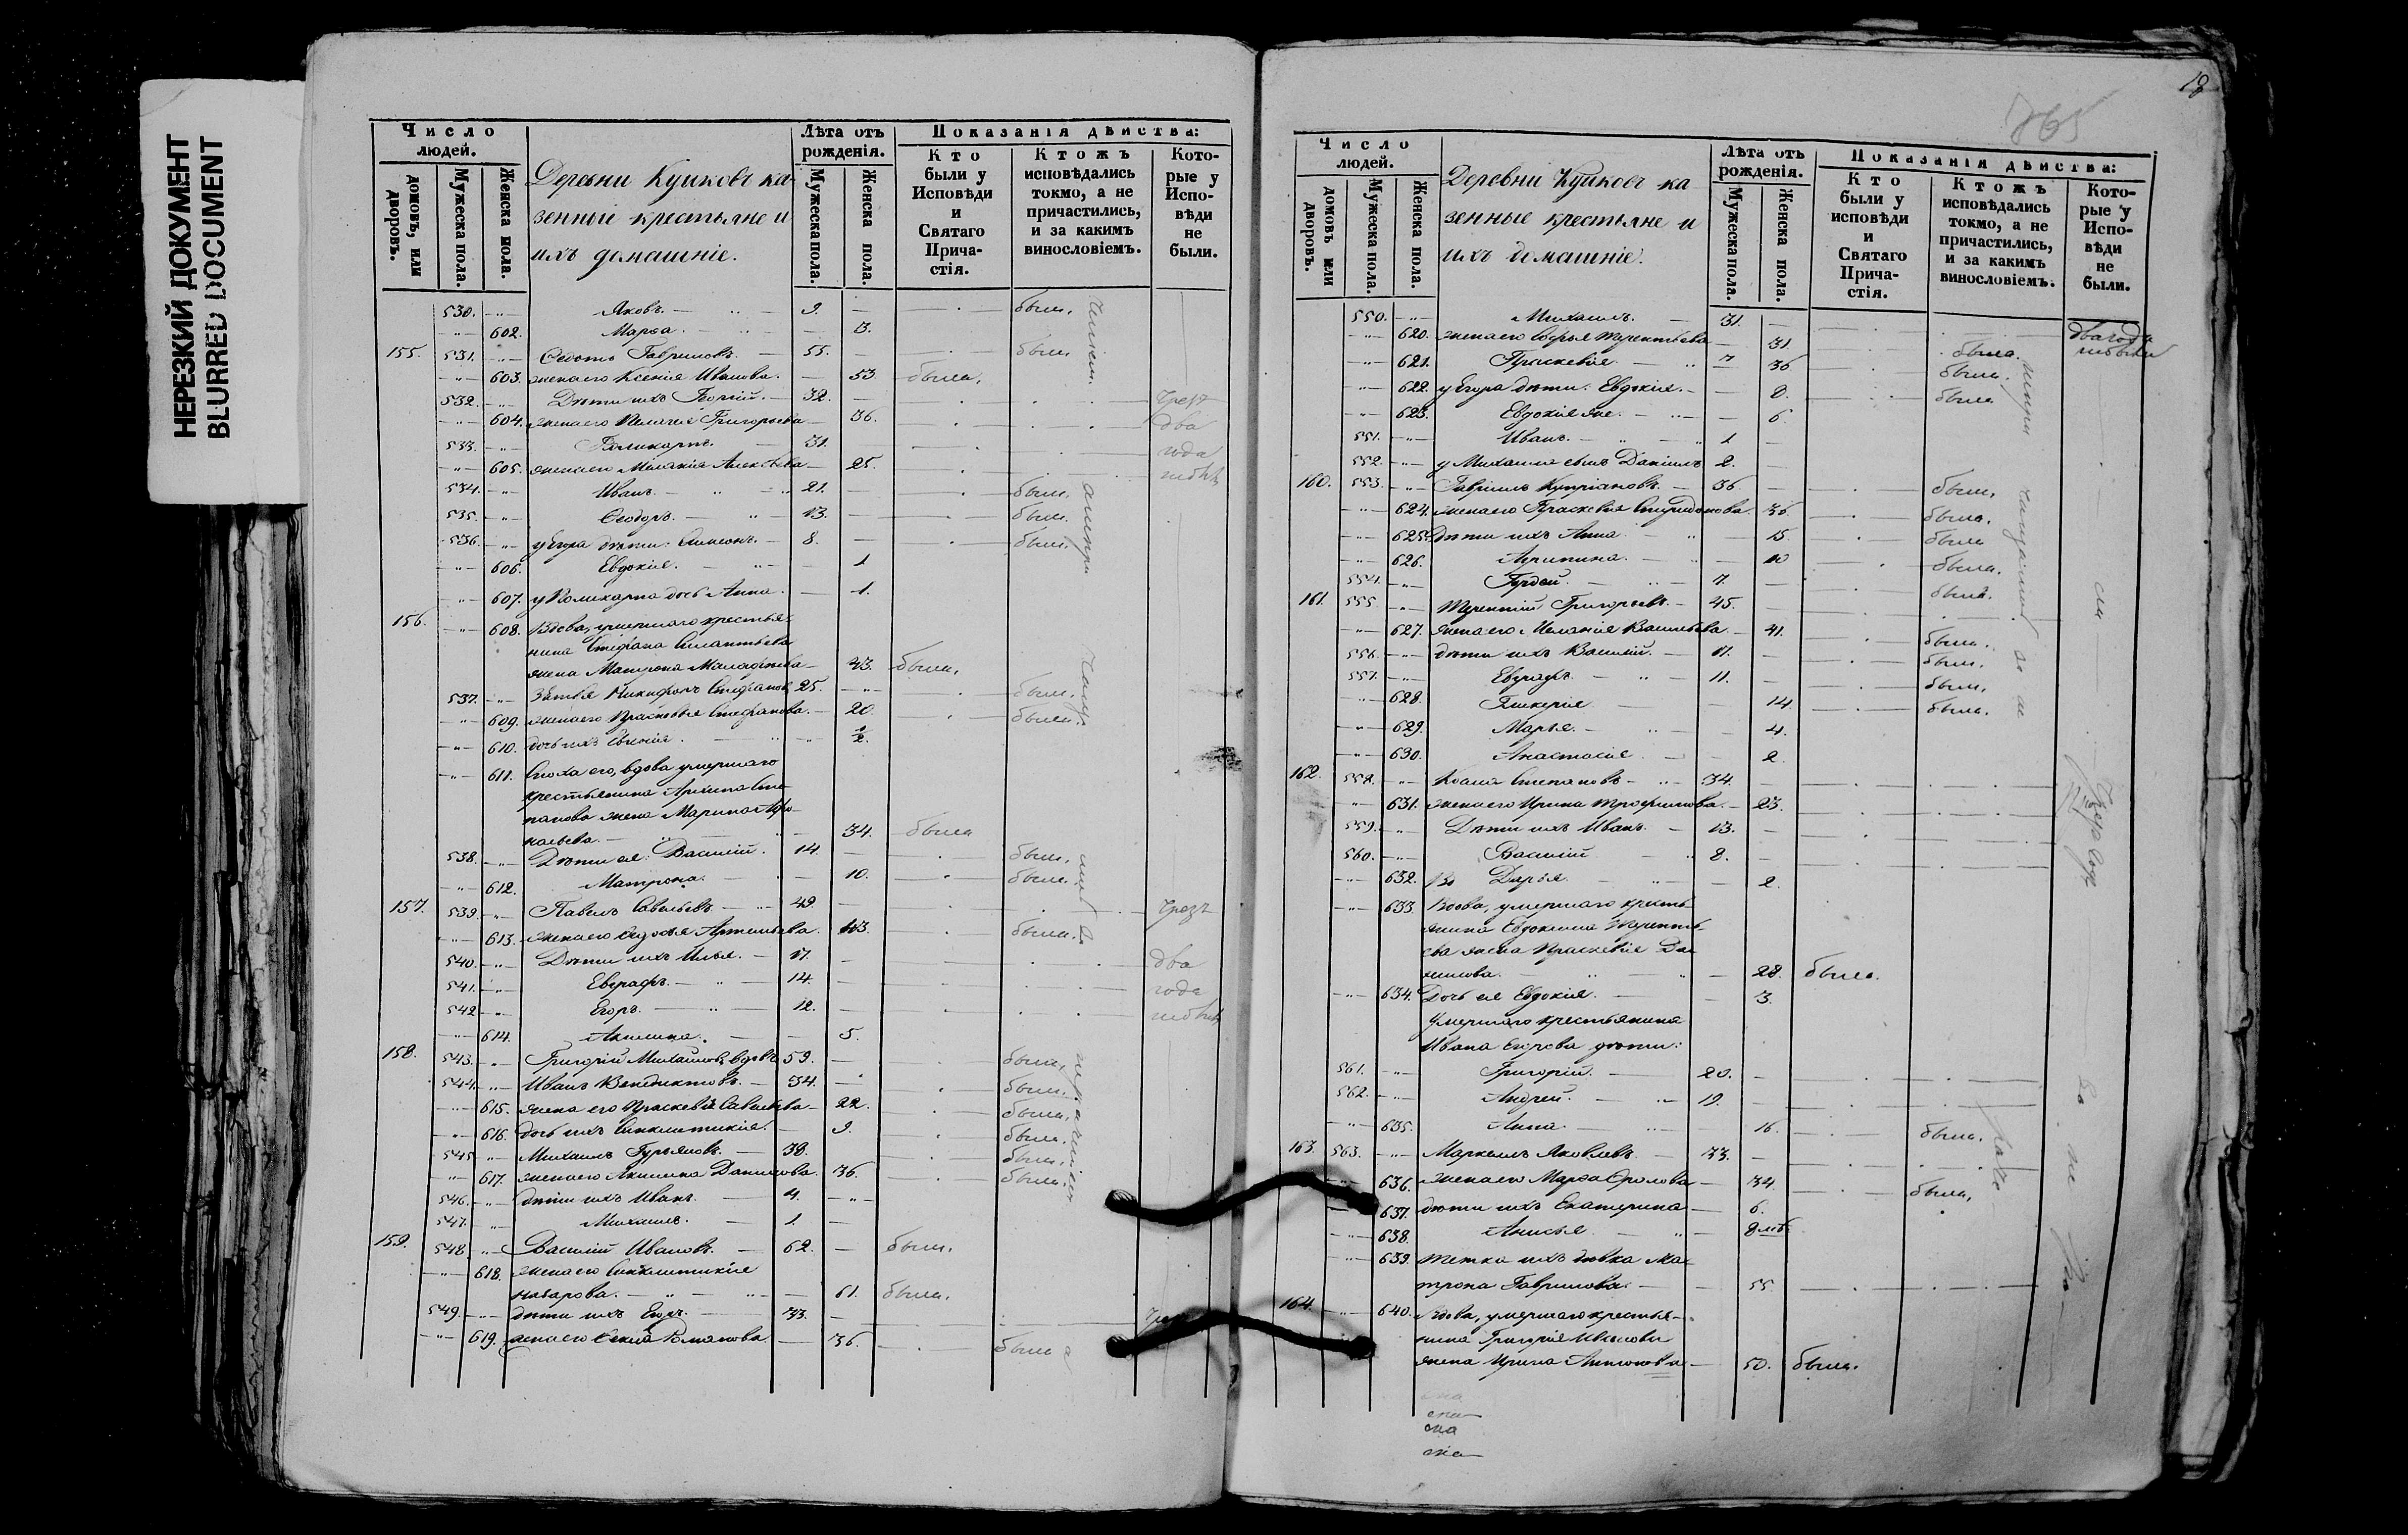 НЕРЕЗКИЙ ДОКУМЕНТ
BLURRED DOCUMENT
Число людей.
домовъ, или дворовъ.
Мужеска пола.
Женска пола.
Деревни Куиковъ ка-
зенные крестьяне и
ихъ домашніе.
Лѣта отъ рожденія.
Мужеска пола.
Женска пола.
Показанія дѣйства:
Кто были у Исповѣди и Святаго Прича-стія.
Ктожъ исповѣдались токмо, а не причастились, и за какимъ винословіемъ.
Кото-рые у Испо-вѣди не были.
530. Яковъ. 9. былъ.
602. Марѳа. 13.
155. 531. Ѳедотъ Гавриловъ. 55. былъ
603. жена его Ксенія Иванова. 53. была.
532. Дѣти ихъ Георгій. 32. Чрезъ
604. жена его Пелагія Григорьева 36. два
533. Поликарпъ. 31. года
605. жена его Меланія Алексѣева 25.
534. Иванъ. 21. былъ.
535. Ѳеодоръ. 13. былъ.
536. у Егора дѣти: Симеонъ. 8. былъ.
606. Евдокія. 1
607. у Поликарпа дочь Анна. 1.
156. 608. Вдова, умершаго крестья-
нина Стефана Силантьева
жена Матрона Малафѣева 43. была.
537. Зятья Никифоръ Стефановъ 25. былъ.
609. жена его Прасковья Стефанова. 20. была.
610. дочь ихъ Евгенія. ½.
611. Сноха его, вдова умершаго
крестьянина Архипа Сте-
панова жена Марина Аѳо-
насьева. 34. была
538. Дѣти ея: Василій. 14. былъ.
612. Матрона. 10. была.
157. 539. Павелъ Савельевъ 49. Чрезъ
613. жена его Ѳедосья Артемьева. 43. была.
540. Дѣти ихъ Илья. 17. два
541. Евграфъ. 14. года
542. Егоръ. 12.
614. Акилина. 5.
158. 543. Григорій Михайловъ, вдовъ 59. былъ,
544. Иванъ Венедиктовъ. 34. былъ.
615. жена его Прасковія Савельева 22. была.
616. дочь ихъ Синклитикія. 9. была.
545. Михаилъ Гурьяновъ. 38. былъ.
617. жена его Акилина Данилова. 36. была.
546. дѣти ихъ Иванъ. 4.
547. Михаилъ. 1.
159. 548. Василій Ивановъ. 62. былъ.
618. жена его Синклитикія
назарова. 61. была.
549. дѣти ихъ Егоръ. 33.
619. жена его Ксенія Романова 36. была
18
765
Число людей.
домовъ или дворовъ.
Мужеска пола.
Женска пола.
Деревни Куйковъ ка-
зенные крестьяне и
ихъ домашніе.
Лѣта отъ рожденія.
Мужеска пола.
Женска пола.
Показанія дѣйства:
Кто были у исповѣди и Святаго Прича-стія.
Ктожъ исповѣдались токмо, а не причастились, и за какимъ винословіемъ.
Кото-рые у Испо-вѣди не были.
550. Михаилъ. 31. два года
620. жена его Софья Терентьева 31 была.
621. Праскевія 36 была.
622. у Егора дѣти: Евдокія. 8. была
623. Евдокія же. 6.
551. Иванъ. 1
552. у Михаила сынъ Даніилъ 2.
160. 553. Гавріилъ Купріановъ. 36 былъ.
624. жена его Праскевія Спиридонова. 36. была.
625. Дѣти ихъ Анна. 15. была
626. Агрипина. 10 была.
554. Гордей. 7. былъ.
161. 555. Терентій Григорьевъ. 45.
627. жена его Меланія Васильева. 41. была.
556. дѣти ихъ Василій. 17. былъ.
557. Евграфъ. 11. былъ.
628. Гликерія 14. была.
629. Марья. 4.
630. Анастасія 2.
162. 558. Козма Степановъ 34.
631. жена его Ирина Трофимова. 23.
559. Дѣти ихъ Иванъ. 13.
560. Василій 8.
632. Дарья. 2.
633. Вдова, умершаго кресть-
янина Евдокима Терентье-
ва жена Праскевія Да-
нилова. 28. была.
634. Дочь ея Евдокія. 3.
Умершаго крестьянина
Ивана Егорова дѣти:
561. Григорій. 20.
562. Андрей. 19.
635. Анна. 16. была.
163. 563. Маркелъ Яковлевъ. 33.
636. жена его Марѳа Фролова 34. была.
637. дѣти ихъ Екатерина 6.
638. Анисья
639. Тетка ихъ дѣвка Ма-
трона Гаврилова. 55.
164. 640. Вдова, умершаго крестья-
нина Григорія Иванова
жена Ирина Антонова 50. была.